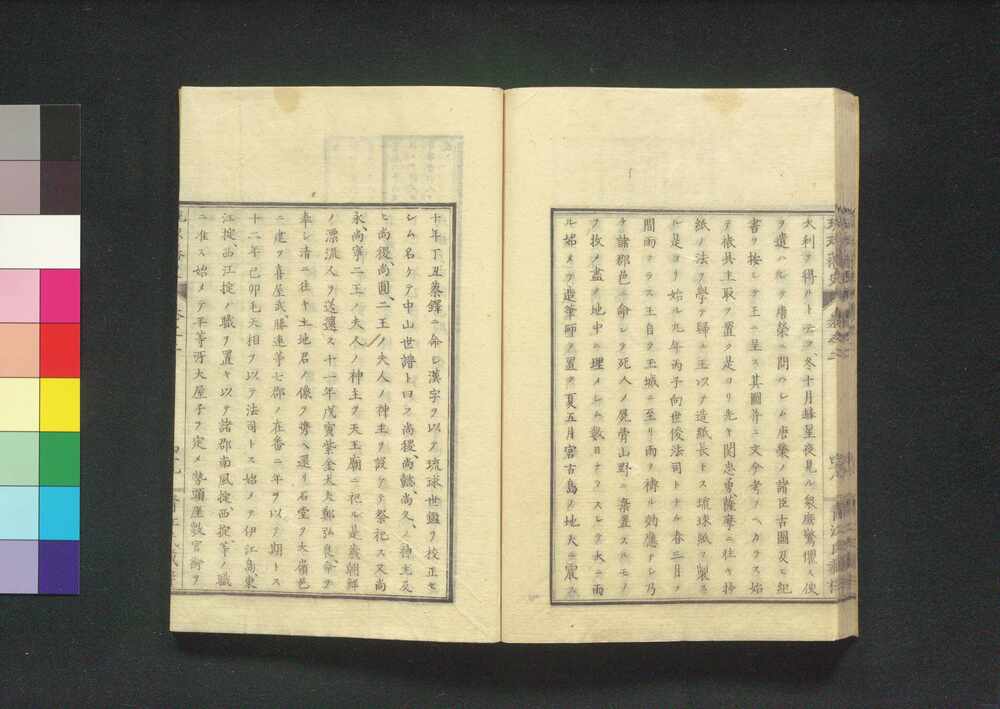 大利ヲ得ルト云フ、冬十月彗星夜見ル衆庶驚懼ス使
ヲ遣ハシテ唐榮ニ問ハシム唐榮ノ諸臣古圖及ヒ紀
書ヲ按シテ王ニ呈ス其圖并ニ文今考フヘカラス始
テ紙具主取ヲ置ク是ヨリ先キ関忠勇、薩摩ニ往キ抄
紙ノ法ヲ學テ歸ル王以テ造紙長トス琉球紙ヲ製ス
ル是ヨリ始ル九年丙子向世俊法司トナル春三月ノ
間雨フラス王自ラ王城ニ至リ雨ヲ禱ル効應ナシ乃
チ諸郡邑ニ命シテ死人ノ屍骨山野ニ棄置スルモノ
ヲ收メ盡ク地中ニ埋メシム數日ナラスシテ大ニ雨
ル始メテ造筆師ヲ置ク夏五月宮古島ノ地大ニ震ス
十年丁丑蔡鐸ニ命シ漢字ヲ以テ琉球世鑑ヲ校正セ
シム名ケテ中山世譜ト曰フ尚稷、尚懿、尚久、ノ神主及
ヒ尚稷、尚圓、二王ノ夫人ノ神主ヲ設ケテ祭祀ス又尚
永、尚寧二王ノ夫人ノ神主ヲ天王廟ニ祀ル是歳朝鮮
ノ漂流人ヲ送還ス十一年戊寅紫金大夫鄭弘良命ヲ
奉シ清ニ往キ土地君ノ像ヲ携ヘ還リ石堂ヲ大嶺邑
ニ建ツ喜屋武勝連等七郡ノ在番二年ヲ以テ期トス
十二年己卯毛天相ヲ以テ法司トス始メテ伊江島東
江掟、西江掟ノ職ヲ置キ以テ諸郡南風掟、西掟等ノ職
ニ准ス始メテ平等所大屋子ヲ定メ勢頭座敷官銜ヲ